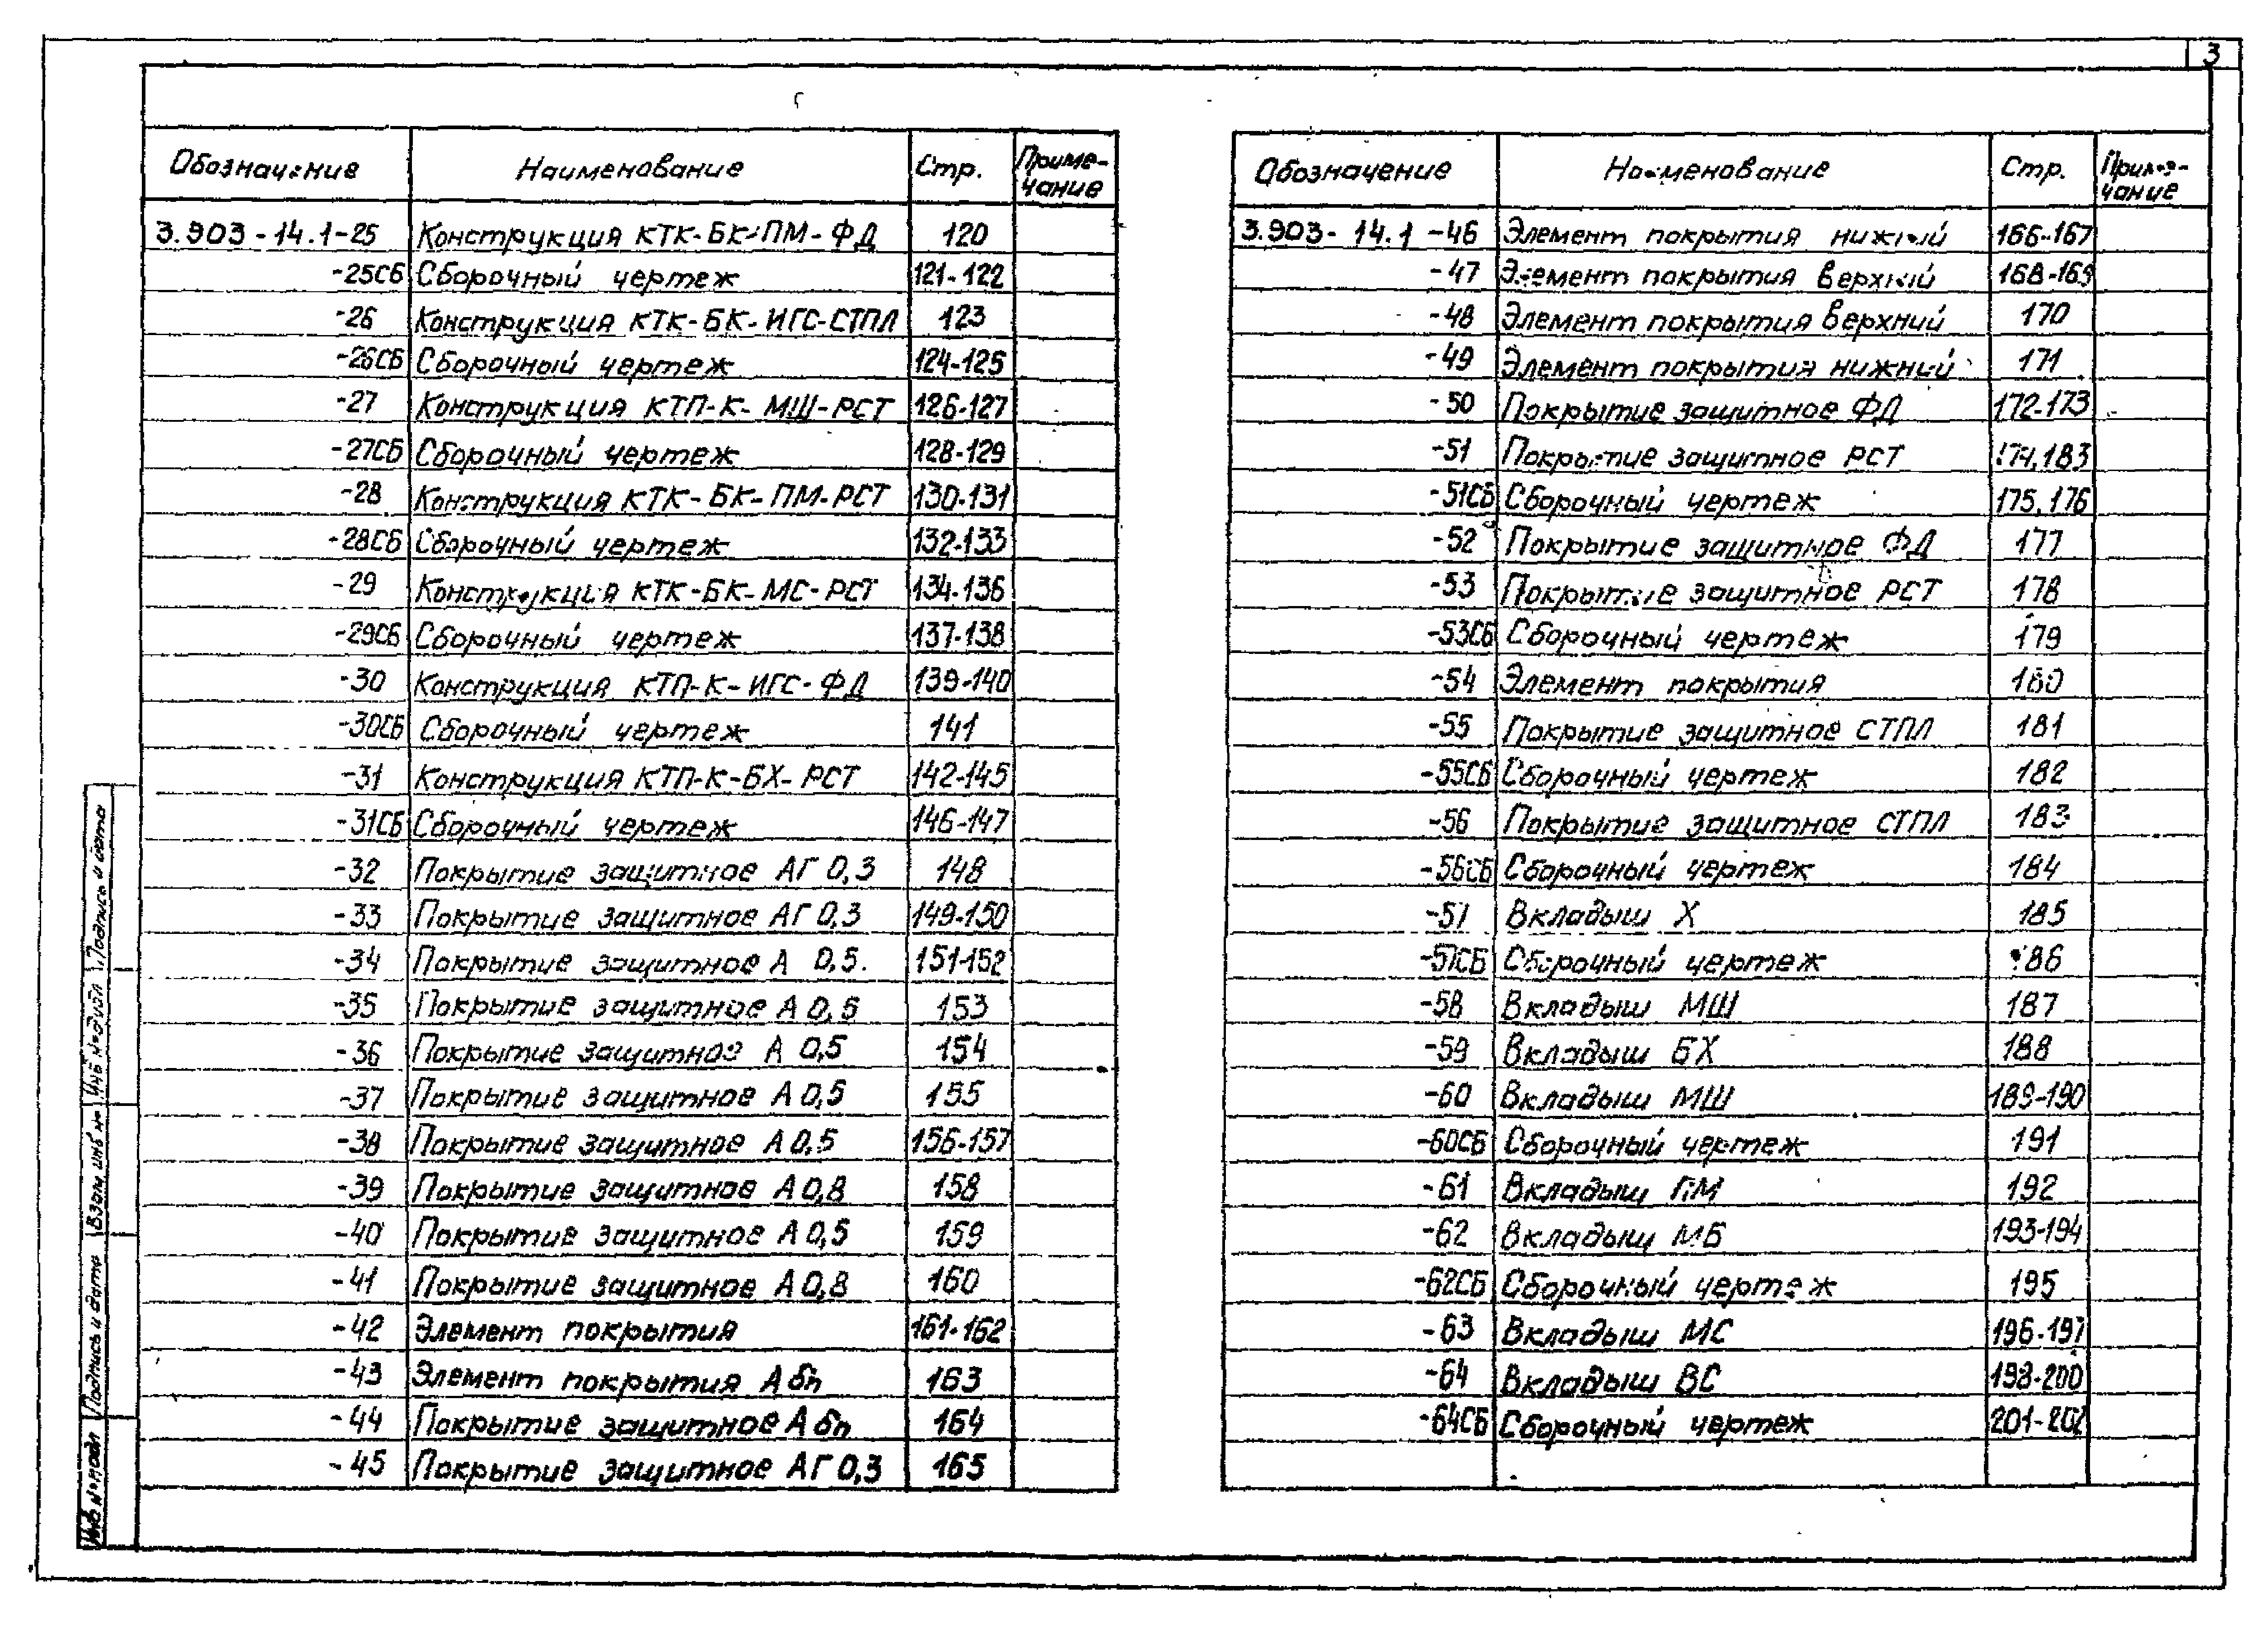 3
Обозначение Наименование Стр. Приме-
чание
3.903-14.1-25 Конструкция КТК-БК-ПМ-ФД 120
-25СБ Сборочный чертеж 121-122
-26 Конструкция КТК-БК-ИГС-СТПЛ 123
-26СБ Сборочный чертеж 124-125
-27 Конструкция КТП-К-МШ-РСТ 126-127
-27СБ Сборочный чертеж 128-129
-28 Конструкция КТК-БК-ПМ-РСТ 130-131
-28СБ Сборочный чертеж 132-133
-29 Конструкция КТК-БК-МС-РСТ 134-136
-29СБ Сборочный чертеж 137-138
-30 Конструкция КТП-К-ИГС-ФД 139-140
-30СБ Сборочный чертеж 141
-31 Конструкция КТП-К-БХ-РСТ 142-145
-31СБ Сборочный чертеж 146-147
-32 Покрытие защитное АГ 0,3 148
-33 Покрытие защитное АГ 0,3 149-150
-34 Покрытие защитное А 0,5. 151-152
-35 Покрытие защитное А 0,5 153
-36 Покрытие защитное А 0,5 154
-37 Покрытие защитное А 0,5 155
-38 Покрытие защитное А 0,5 156-157
-39 Покрытие защитное А 0,8 158
-40 Покрытие защитное А 0,5 159
-41 Покрытие защитное А 0,8 160
-42 Элемент покрытия 161-162
-43 Элемент покрытия А бп 163
-44 Покрытие защитное А бп 164
-45 Покрытие защитное АГ 0,3 165
Обозначение Наименование Стр. Приме-
чание
3.903-14.1-46 Элемент покрытия нижний 166-167
-47 Элемент покрытия верхний 168-169
-48 Элемент покрытия верхний 170
-49 Элемент покрытия нижний 171
-50 Покрытие защитное ФД 172-173
-51 Покрытие защитное РСТ 174,183
-51СБ Сборочный чертеж 175,176
-52 Покрытие защитное ФД 177
-53 Покрытие защитное РСТ 178
-53СБ Сборочный чертеж 179
-54 Элемент покрытия 180
-55 Покрытие защитное СТПЛ 181
-55СБ Сборочный чертеж 182
-56 Покрытие защитное СТПЛ 183
-56СБ Сборочный чертеж 184
-57 Вкладыш Х 185
-57СБ Сборочный чертеж 186
-58 Вкладыш МШ 187
-59 Вкладыш БХ 188
-60 Вкладыш МШ 189-190
-60СБ Сборочный чертеж 191
-61 Вкладыш ПМ 192
-62 Вкладыш МБ 193-194
-62СБ Сборочный чертеж 195
-63 Вкладыш МС 196-197
-64 Вкладыш ВС 198-200
-64СБ Сборочный чертеж 201-202
Инв № подл Подпись и дата Взам инв № Инв № дубл Подпись и дата